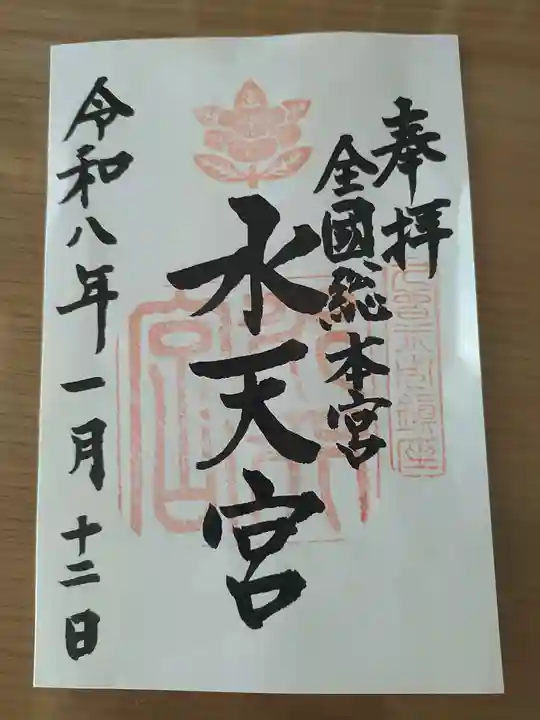 奉拝
全國総本宮
水天宮
令和八年一月十二日